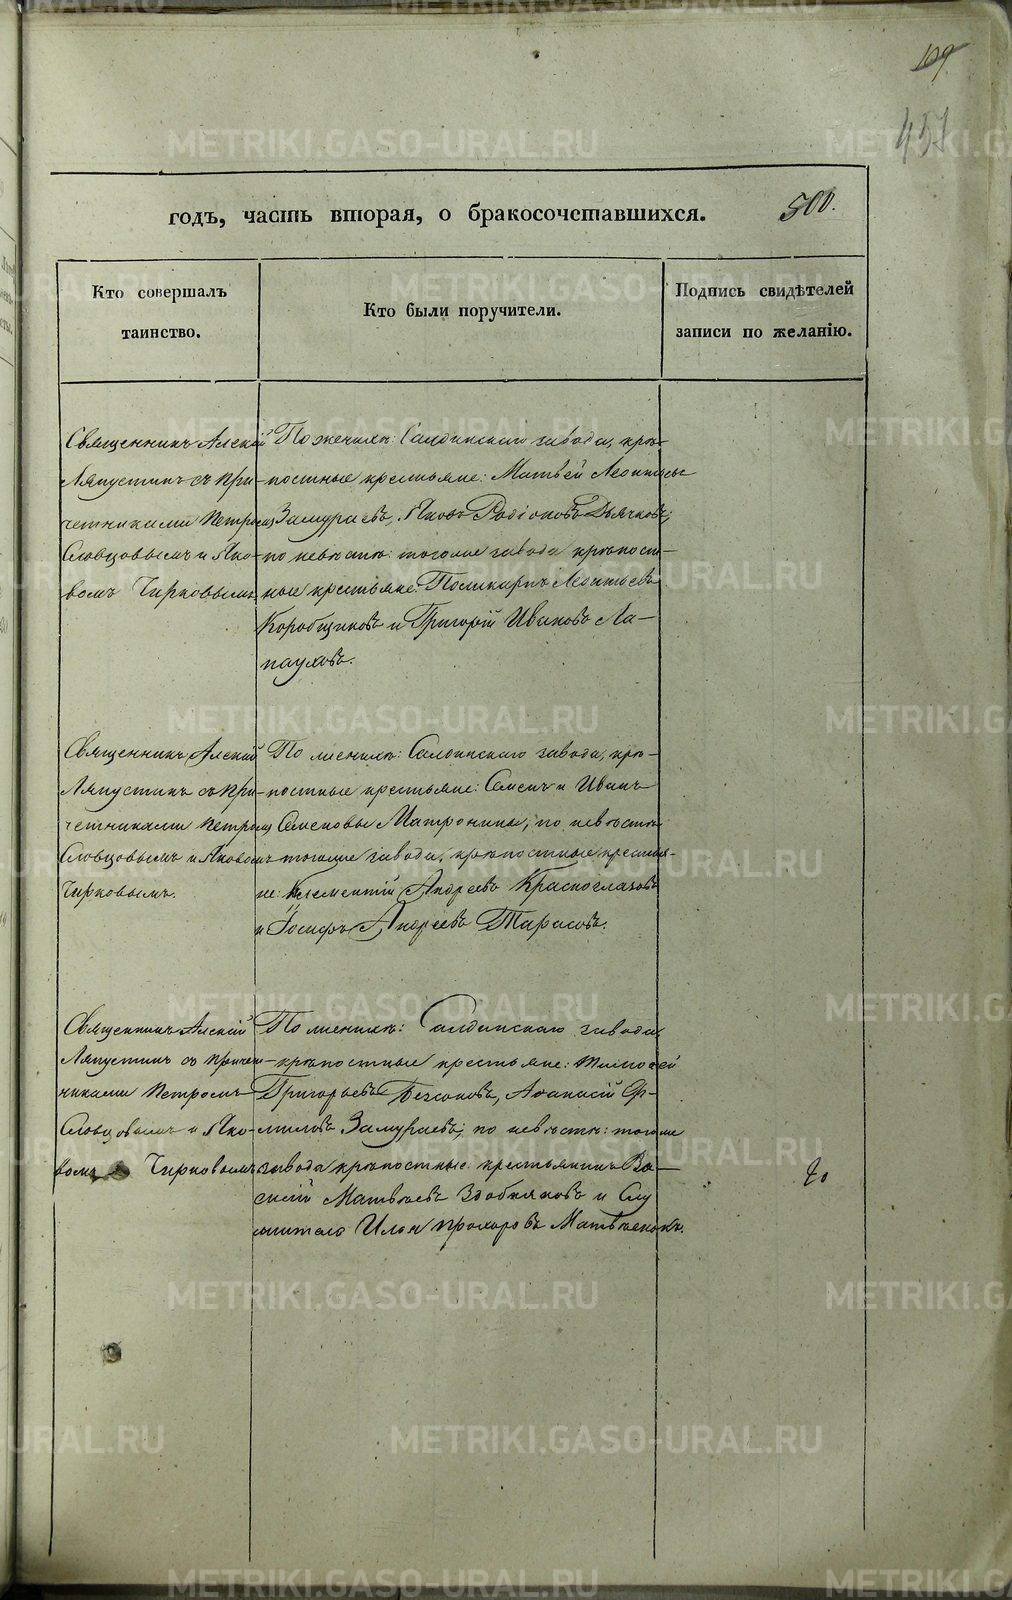 109
451
годъ, часть вторая, о бракосочетавшихся. 500.
Кто совершалъ
таинство.
Кто были поручители.
Подпись свидѣтелей
записи по желанію.
Священникъ Алексій
Ляпустинъ съ при-
четниками Петромъ
Словцовымъ и Яко-
вомъ Чирковымъ.
По женихѣ: Салдинскаго завода, крѣ-
постные крестьяне: Матвей Леонтьевъ
Замураевъ, Яковъ Родіоновъ Дьячковъ;
по невѣстѣ: тогоже завода крѣпост-
ные крестьяне: Поликарпъ Леонтьевъ
Коробщиковъ и Григорій Ивановъ Ла-
пауховъ.
Священникъ Алексій
Ляпустинъ съ при-
четниками Петромъ
Словцовымъ и Яковомъ
Чирковымъ.
По женихѣ: Салдинскаго завода, крѣ-
постные крестьяне: Семенъ и Иванъ
Семеновы Матронины; по невѣстѣ
тогоже завода, крѣпостные крестья-
не: Клементій Андреевъ Красноглазовъ
и Іосифъ Андреевъ Тарасовъ.
Священникъ Алексій
Ляпустинъ съ причет-
никами Петромъ
Словцовымъ и Яко-
вомъ Чирковымъ
По женихѣ: Салдинскаго завода
крѣпостные крестьяне: Тимофей
Григорьевъ Безсоновъ, Афанасій Ер-
миловъ Замураевъ; по невѣстѣ: тогоже
завода крѣпостные крестьянинъ Ва-
силій Матвѣевъ Здобняковъ и Слу
житель Илья Прохоровъ Матвѣенокъ.
METRIKI.GASO-URAL.RU